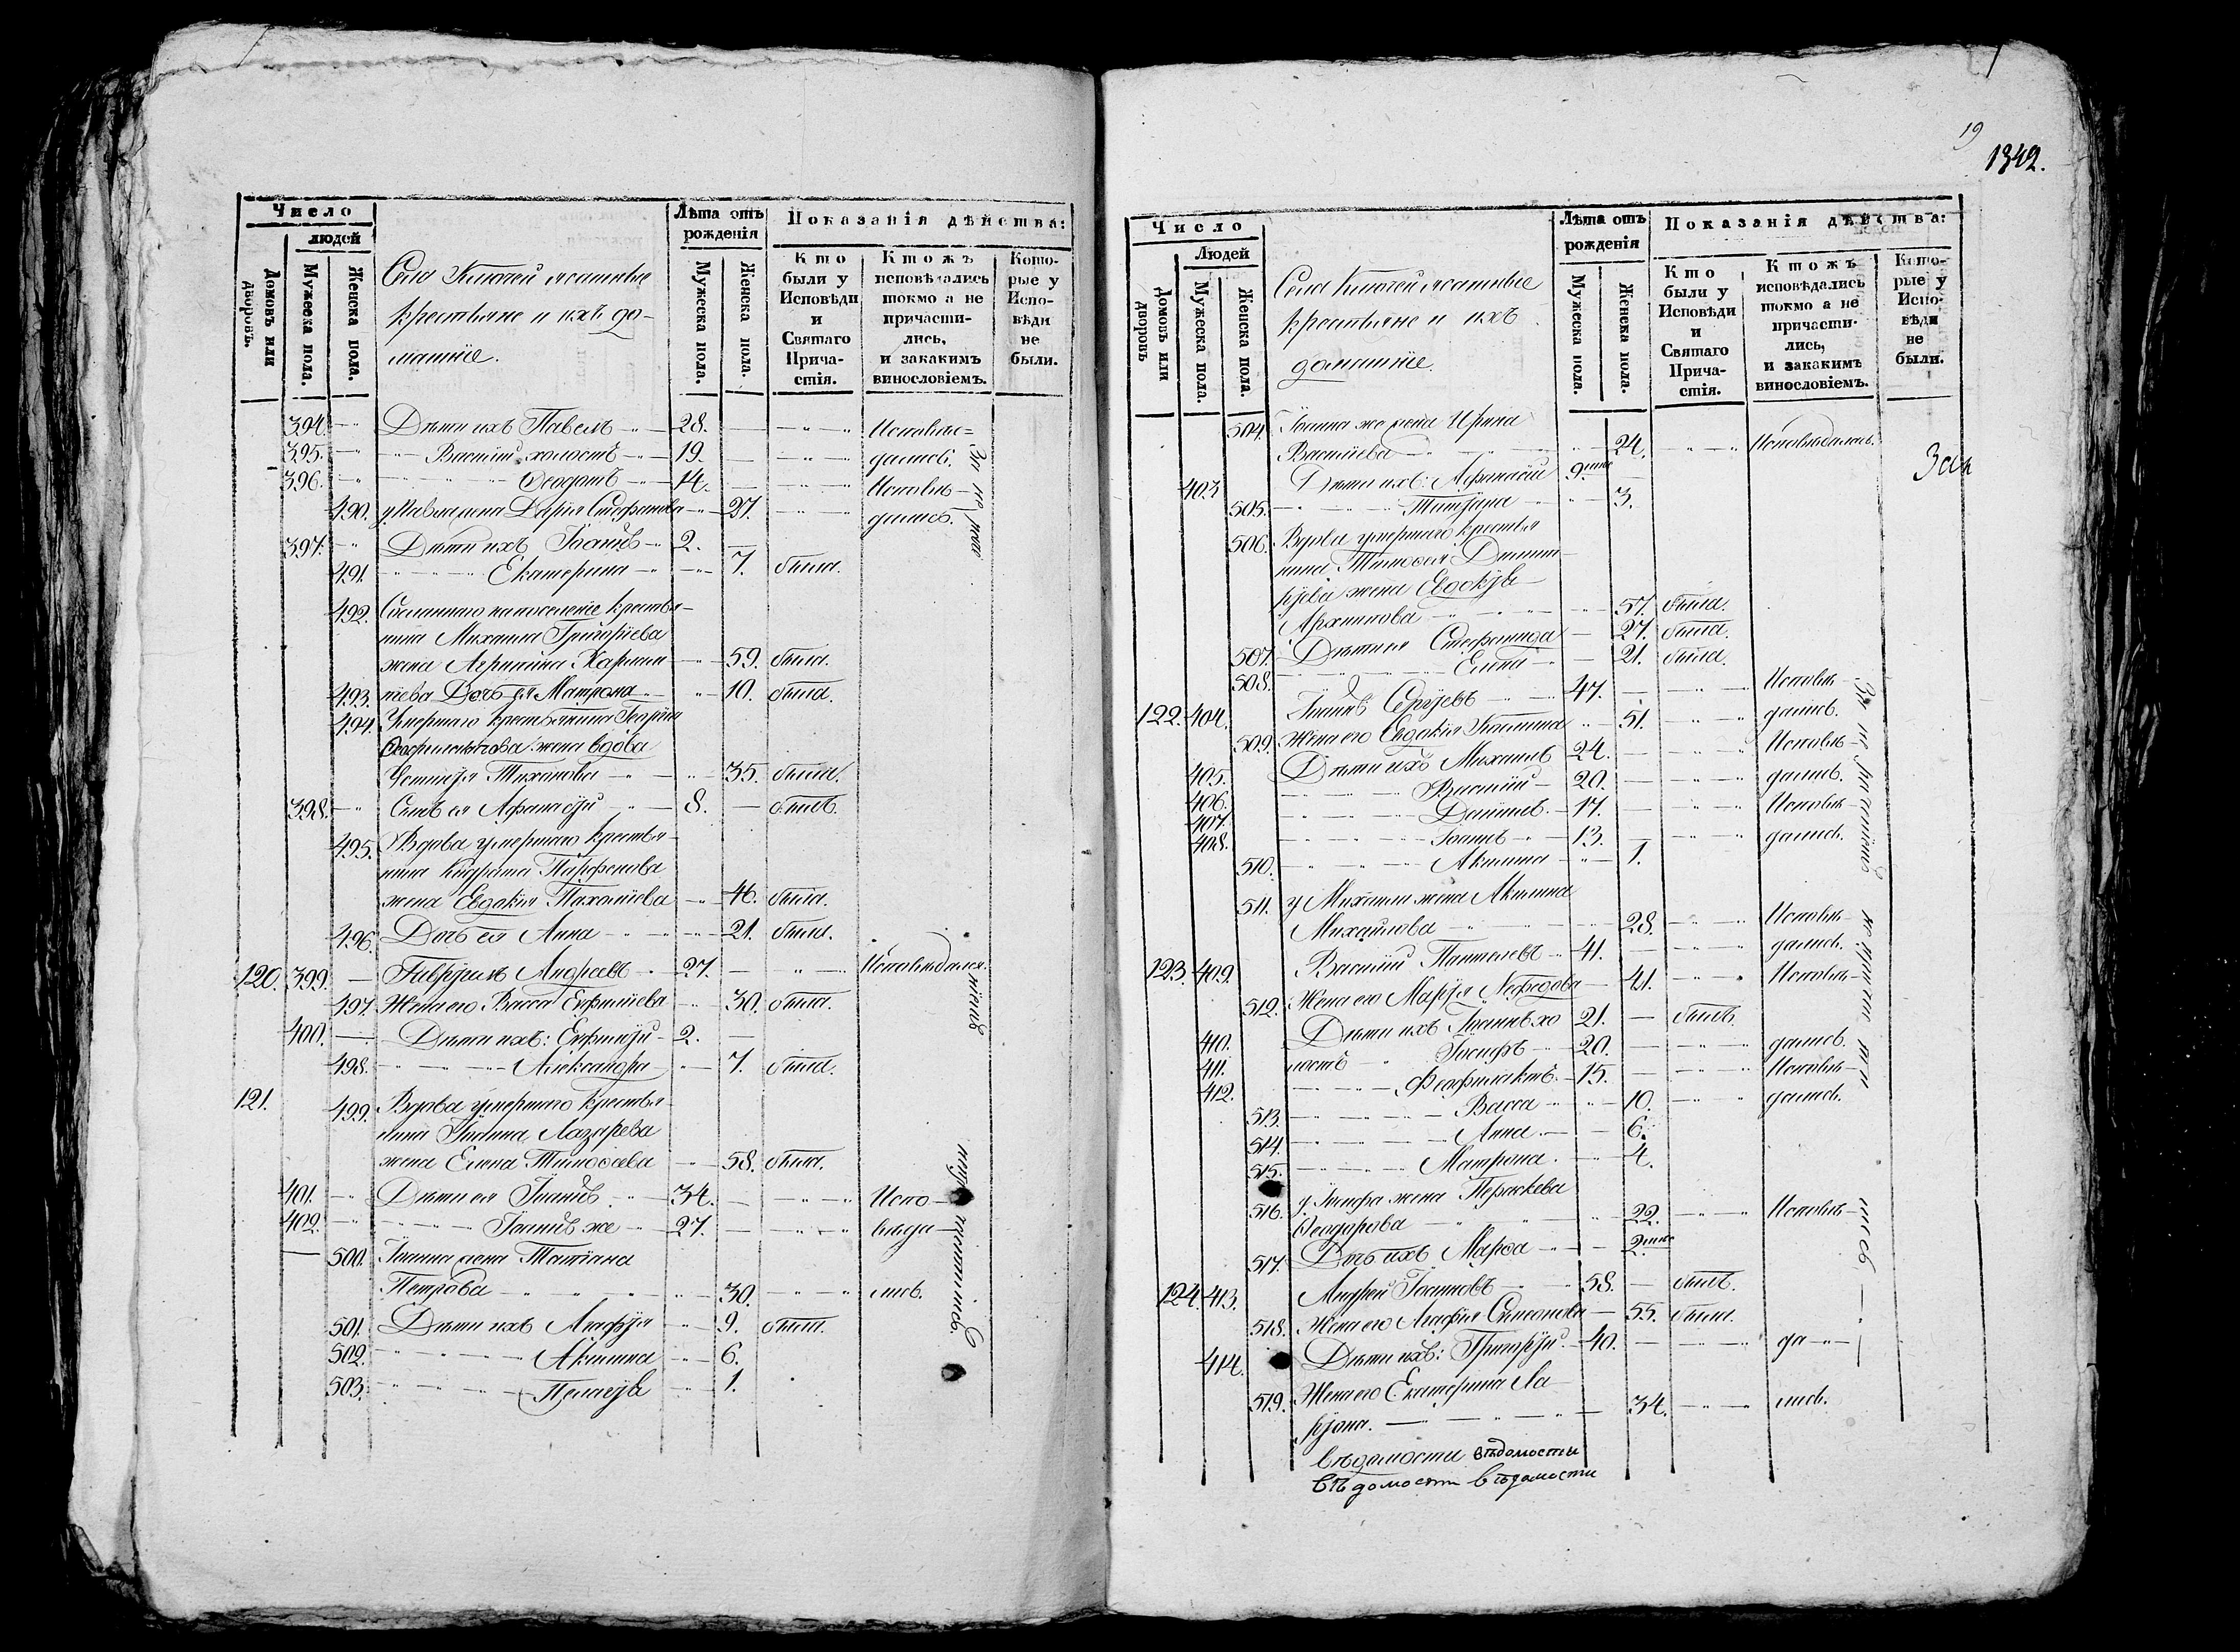 Число
людей
Домовъ или дворовъ.
Мужеска пола.
Женска пола.
Села Ключей ясашные
крестьяне и ихъ до-
машніе.
Лѣта отъ рожденія
Мужеска пола.
Женска пола.
Показанія дѣйства:
Кто были у Исповѣди и Святаго Прича-стія.
Ктожъ исповѣдались токмо а не причасти-лись, и закакимъ винословіемъ.
Кото-рые у Испо-вѣди не были.
394. Дѣти ихъ Павелъ 28. Исповѣ=
395. Василій холостъ 19. дались.
396. Ѳеодотъ 14. Исповѣ-
490. у Павла жена Дарія Стефанова 27. дались.
397. Дѣти ихъ Іоаннъ 2.
491. Екатерина 7. была.
492. Сосланнаго на поселеніе крестья-
нина Михаила Григоріева
жена Агрипина 59. была.
493. Дочь ея Матрона 10. была.
494. Умершаго крестьянина Георгія
Ѳеофилактова жена вдова
Устинія Тихонова 35. была.
398. Сынъ ея Афанасій 8. былъ.
495. Вдова умершаго крестья-
нина Кодрата Парфенова
жена Евдокія Пахоміева 46. была.
496. Дочь ея Анна 21. была.
120. 399. Гавріилъ Андреевъ 27. Исповѣдался.
497. Жена его Васса Евфиміева 30. была.
400. Дѣти ихъ: Евфимій 2.
498. Александра 7. была.
121. 499. Вдова умершаго крестья-
нина Лазарева
жена Елена Тимоѳеева 58. была.
401. Дѣти ея Іоаннъ 34. Испо-
402. Іоаннъ же 27. вѣда-
500. Іоанна жена Татіана
Петрова 30. лись.
501. Дѣти ихъ Агафія 9. была.
502. Акилина 6.
503. Пелагія 1.
19
1342.
Число
Людей
Домовъ или дворовъ
Мужеска пола.
Женска пола.
Села Ключей ясашные
крестьяне и ихъ
домашніе.
Лѣта отъ рожденія
Мужеска пола.
Женска пола.
Показанія дѣйства:
Кто были у Исповѣди и Святаго Прича-стія.
Ктожъ исповѣдались токмо а не причасти-лись, и закакимъ винословіемъ.
Кото-рые у Испо-вѣди не были.
504. Іоанна же жена Ирина
Васильева 24. Исповѣдалась.
403. Дѣти ихъ: Афанасій 9
505. Татіана 3.
506. Вдова умершаго крестья
нина Тимоѳея Димит-
ріева жена Евдокія
Архипова 57. была.
507. Дѣти ея Стефанида 27. была.
508. Елена 21. была.
122. 404. Іоаннъ Сергіевъ 47. Исповѣ-
509. Жена его Евдокія 51. дались.
405. Дѣти ихъ Михаилъ 24. Исповѣ-
406. Василій 20. дались.
407. Даніилъ 17. Исповѣ-
408. Іоаннъ 13. дались.
510. Акилина 1.
511. у Михаила жена Акилина
Михайлова 28. Исповѣ-
123. 409. Василій Пантелеевъ 41. дались.
512. Жена его Марія Нефедова 41. Исповѣ-
410. Дѣти ихъ Іоаннъ хо 21. былъ.
411. лостъ Іосифъ 20. дались.
412. Феофилактъ 15. Исповѣ-
513. Васса 10. дались.
514. Анна 6.
515. Матрона. 4.
516. у Іосифа жена Параскева
Ѳеодорова 22. Исповѣ-
517. Дочь ихъ Марѳа 2
124. 413. Андрей Іоанновъ 58. былъ.
518. Жена его Агафія Симонова 55. была.
414. Дѣти ихъ: Григорій 40. да-
519. Жена его Екатерина Ла-
ріона. 34. лись.
вѣдомости вѣдомости
вѣдомости вѣдомости